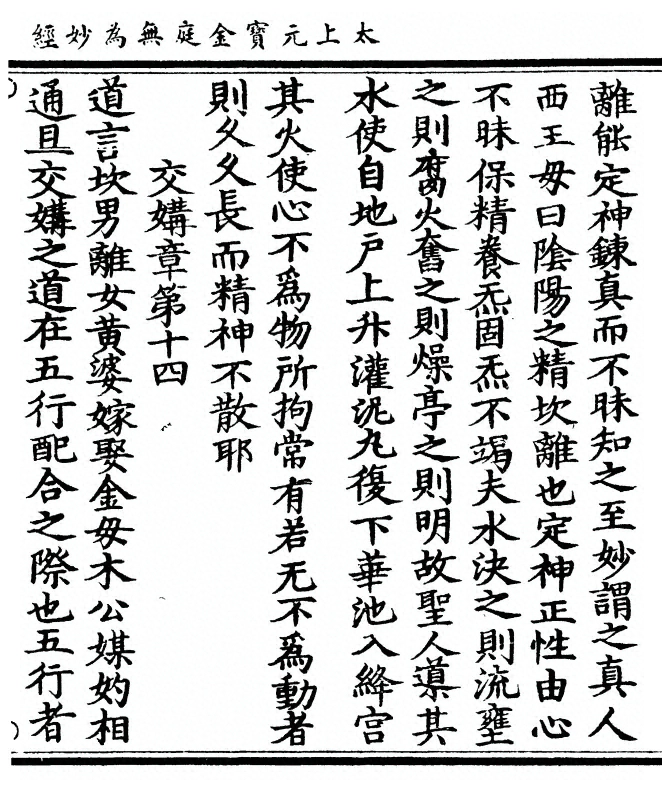 太上元寶金庭無為妙經
離能定神鍊真而不昧知之至妙謂之真人
西王毋曰陰陽之精坎離也定神正性由心
不昧保精養炁固炁不竭夫水決之則流壅
之則腐火奮之則燥亭之則明故聖人導其
水使自地户上升灌泥丸復下華池入絳宫
其火使心不爲物所拘常有若无不爲動者
則久久長而精神不散耶
交媾章第十四
道言坎男離女黄婆嫁娶金毋木公媒妁相
通且交媾之道在五行配合之際也五行者